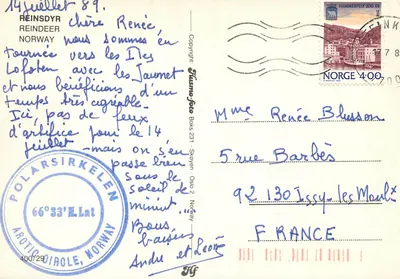 14 juillet 89.
REINSDYR
REINDEER
NORWAY
Chère Renée
nous sommes en
tournée vers les Iles
Lofoten avec les Jaumet
et nous bénéficions d'un
temps très agréable.
Ici, pas de feux
d'artifice pour le 14
juillet - mais on s'en
passe bien
sous le
soleil de
minuit...
Bons
baisers
Andre et Leone
POLARSIRKELEN
66°33'N.Lat
ARCTIC CIRCLE, NORWAY
400/29
Copyright Husmo-foto Boks 231 - Skøyen - Oslo 2 - Norway
HAMMERFEST 200 ÅR
NORGE 4.00
Mme Renée Blusson
5 rue Barbès
92 130 Issy-les-Moulx
FRANCE